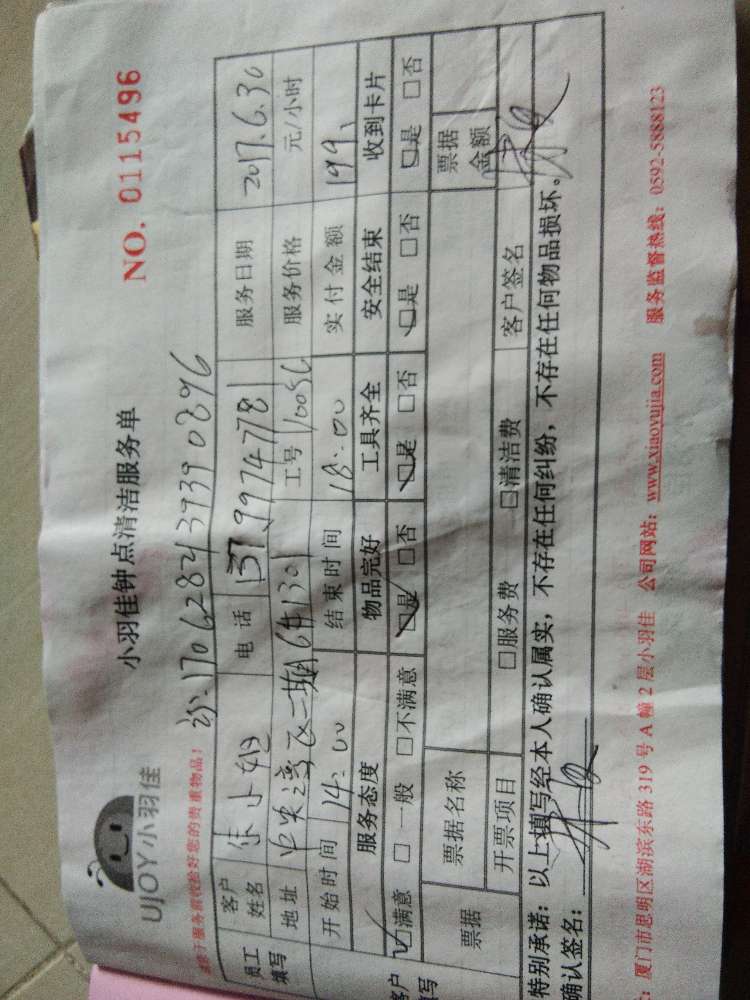 UJOY小羽佳
小羽佳钟点清洁服务单
NO. 0115496
请于服务前收拾好您的贵重物品!
员工填写
客户姓名
电话
服务日期 2017.6.30
地址
工号
服务价格 元/小时
开始时间 14:00
结束时间 18:00
实付金额 199
服务态度 物品完好 工具齐全 安全结束 收到卡片
☑满意 □一般 □不满意 ☑是 □否 ☑是 □否 ☑是 □否 ☑是 □否
票据 票据名称 票据金额
开票项目 □服务费 □清洁费 客户签名
特别承诺:以上填写经本人确认属实,不存在任何纠纷,不存在任何物品损坏。
确认签名:
厦门市思明区湖滨东路319号A幢2层小羽佳 公司网站:www.xiaoyujia.com 服务监督热线:0592-5888123